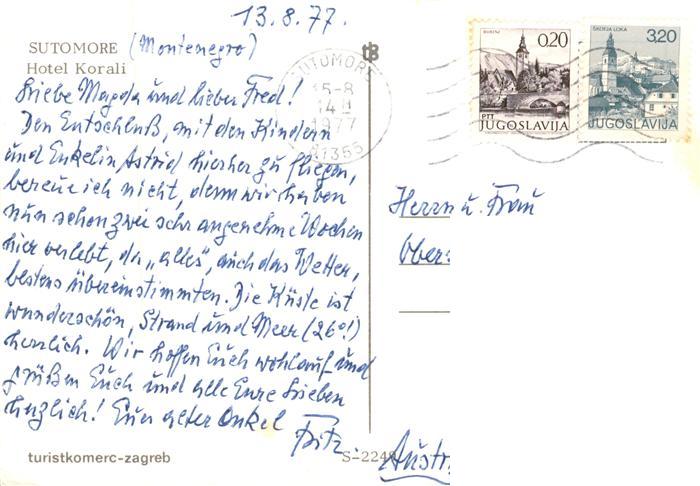 13.8.77.
SUTOMORE (Montenegro)
Hotel Korali
Liebe Magda und lieber Fred!
Den Entschluß, mit den Kindern
und Enkelin Astrid hierher zu fliegen,
bereue ich nicht, denn wir haben
nun schon zwei sehr angenehme Wochen
hier verlebt, da „alles", auch das Wetter,
bestens übereinstimmten. Die Küste ist
wunderschön, Strand und Meer (26°!)
herrlich. Wir hoffen Euch wohlauf und
grüßen Euch und alle Eure Lieben
herzlich! Euer alter Onkel
Fritz.
turistkomerc-zagreb
S-2249
tB
SUTOMORE
15-8
14
1977
81355
0,20
PTT
JUGOSLAVIJA
ŠKOFJA LOKA
3,20
JUGOSLAVIJA
Herrn u. Frau
Ober
Austr